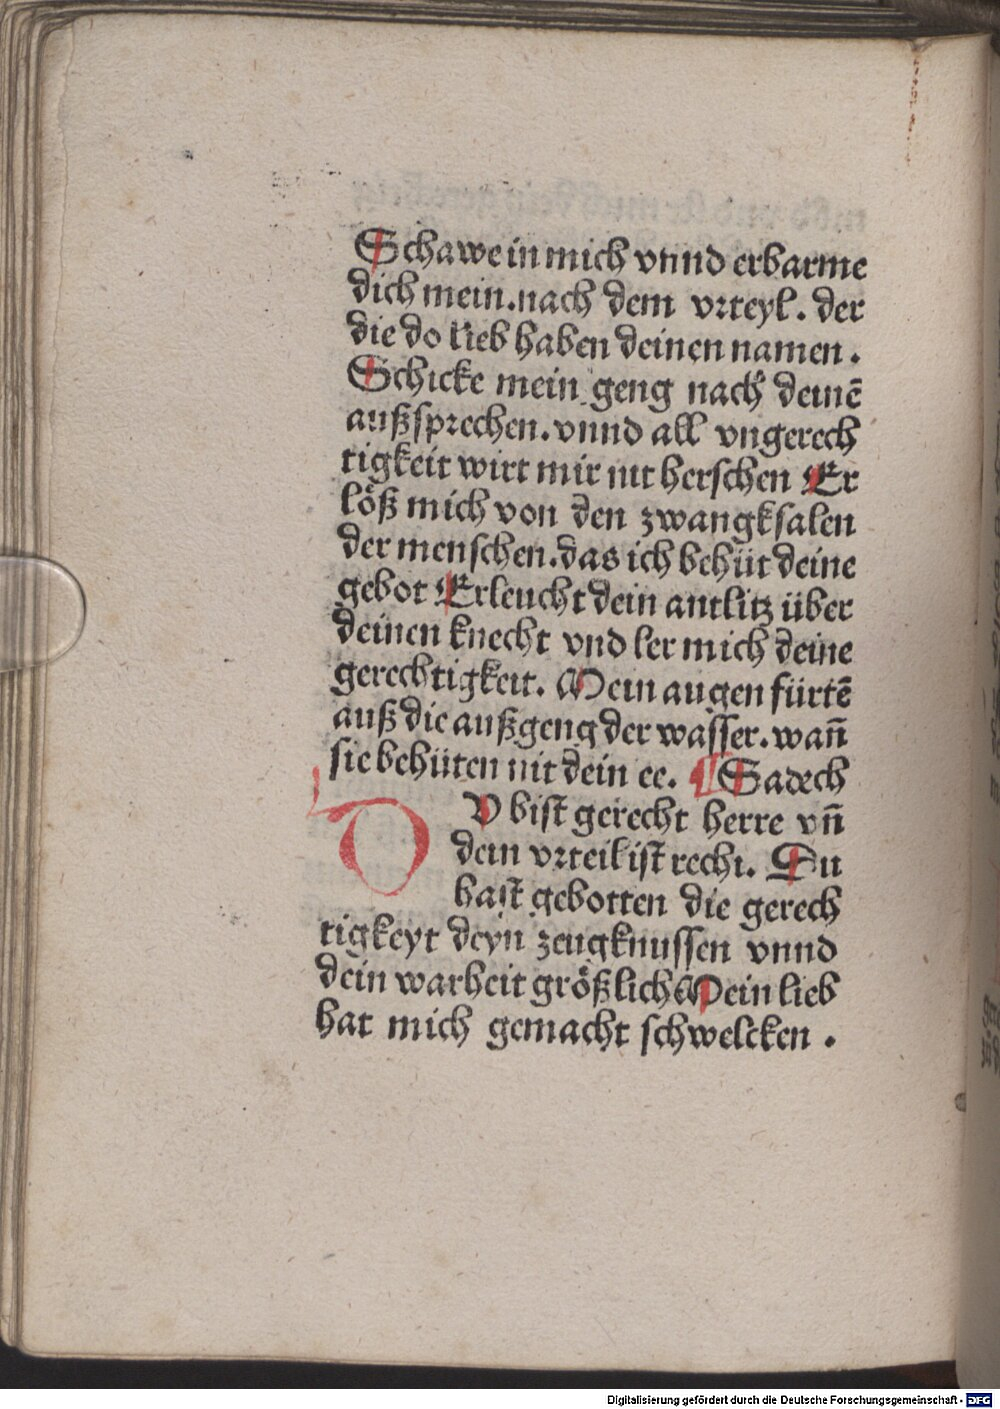 Schawe in mich vnnd erbarme
dich mein. nach dem vrteyl. der
die do lieb haben deinen namen.
Schicke mein geng nach deinē
außsprechen. vnnd all vngerech
tigkeit wirt mir nit herschen Er
löß mich von den zwangksalen
der menschen. das ich behüt deine
gebot Erleucht dein antlitz über
deinen knecht vnd ler mich deine
gerechtigkeit. Mein augen fürtē
auß die außgeng der wasser. wañ
sie behüten nit dein ee. ¶ Sadech
DV bist gerecht herre vñ
dein vrteil ist recht. Du
hast gebotten die gerech
tigkeyt deyn zeugknussen vnnd
dein warheit größlich Mein lieb
hat mich gemacht schwelcken.
Digitalisierung gefördert durch die Deutsche Forschungsgemeinschaft - DFG